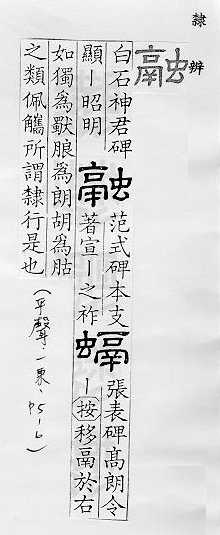 隸辨
融
白石神君碑
顯丨昭明 融 范式碑本支
著宣丨之祚 融 丨 張表碑高朗令
按移鬲於右
如獨爲獸朖爲朗胡爲𦙶
之類佩觿所謂隸行是也
(平聲、一東、P5-6)